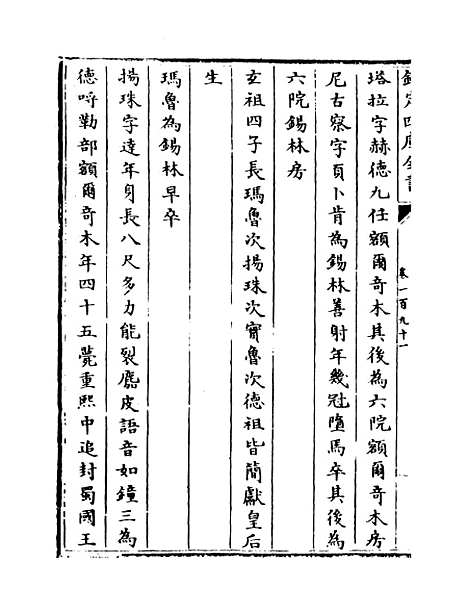 欽定四庫全書
卷一百九十一
塔拉字赫德九任額爾竒木其後為六院額爾竒木房
尼古察字頁卜肯為錫林善射年幾冠墮馬卒其後為
六院錫林房
玄祖四子長瑪魯次揚珠次實魯次德祖皆簡獻皇后
生
瑪魯為錫林早卒
揚珠字達年身長八尺多力能裂麃皮語音如鐘三為
德呼勒部額爾竒木年四十五薨重熙中追封蜀國王